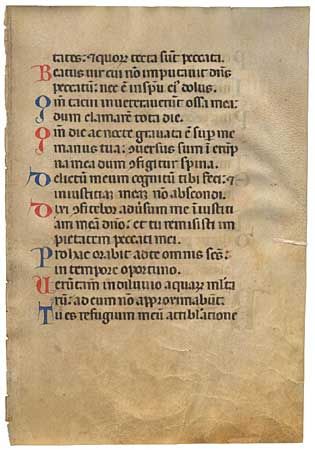 tates: ⁊ quorū tecta sūt peccata.
Beatus uir cui nō imputauit dn̄s
peccatū: nec ē in spū eꝰ dolus.
Qm̄ tacui inueterauerūt ossa mea:
dum clamarē tota die.
Qm̄ die ac nocte grauata ē sup me
manus tua: ꝯuersus sum ī erūp
na mea dum ꝯfigitur spina.
Delictū meum cognitū tibi feci: ⁊
iniustitiaꝫ meaꝫ nō abscondi.
Dixi ꝯfitebor adusum me īiustiti
am meā dn̄o: et tu remisisti im
pietatem peccati mei.
Pro hac orabit ad te omnis scs̄:
in tempore oportuno.
Uerūtam̄ in diluuio aquaꝝ ml̄ta
rū: ad eum nō approximabūt.
Tu es refugium meū a tribulatione